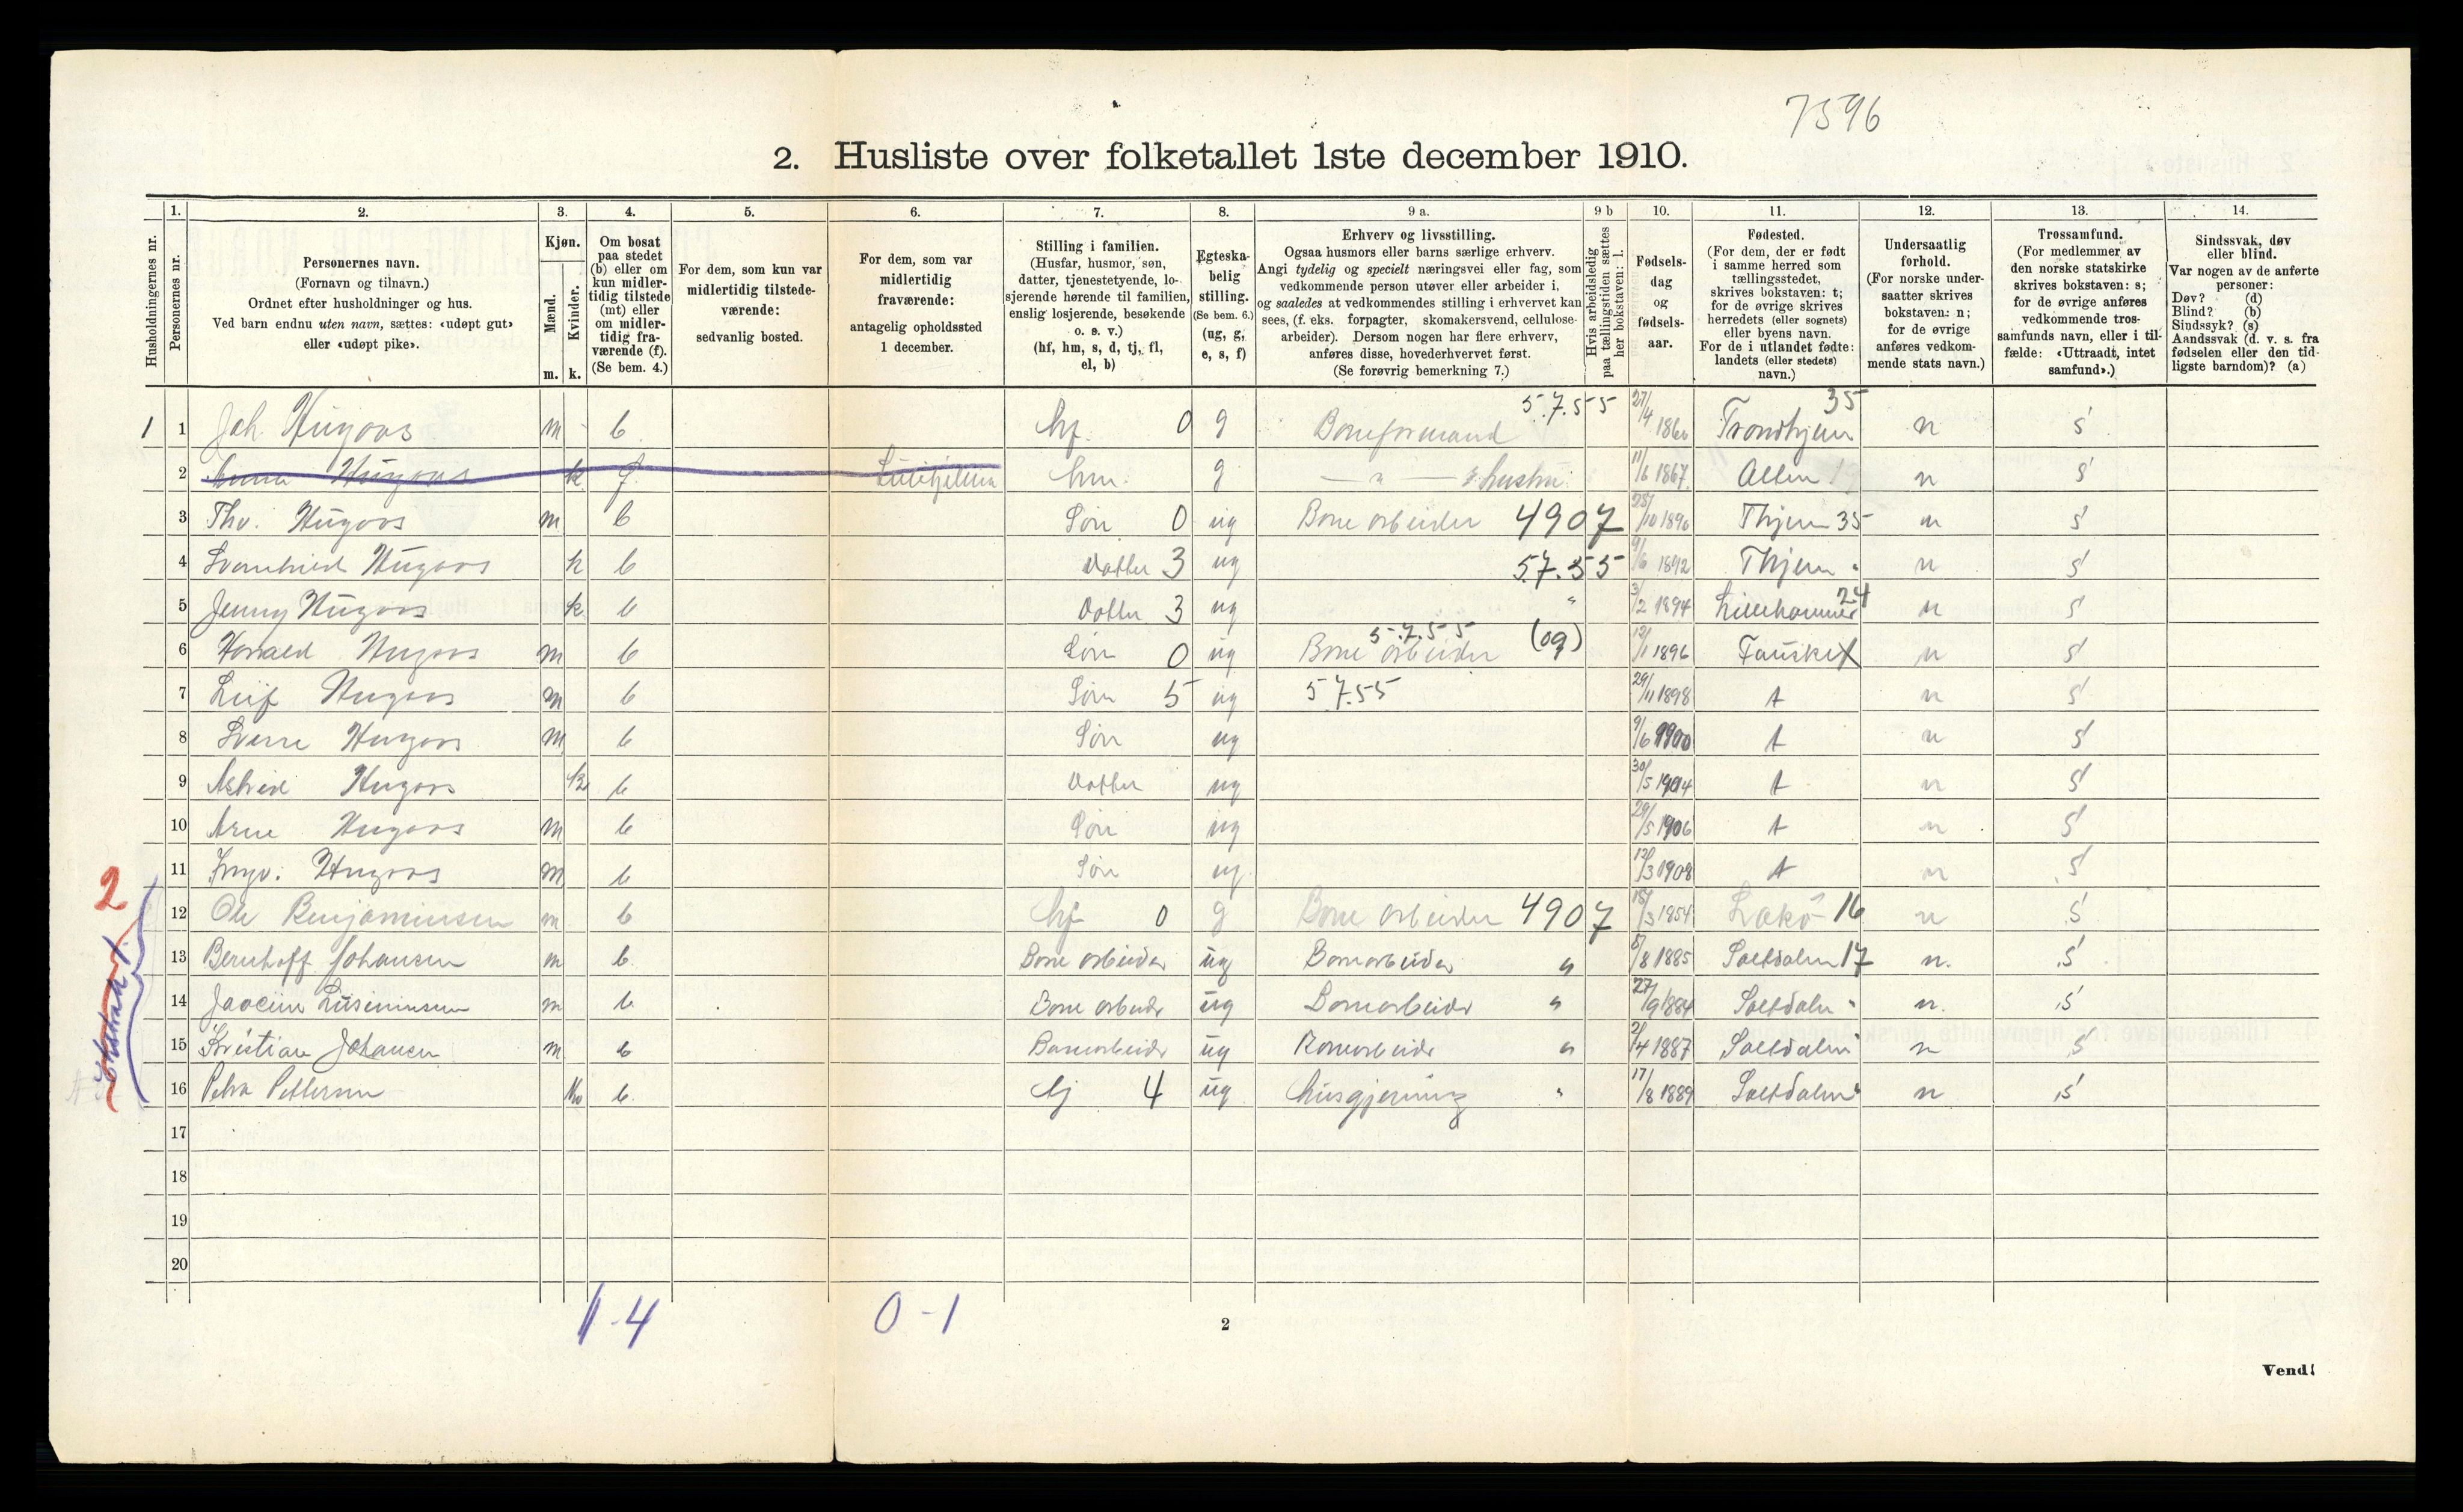 7596
2. Husliste over folketallet 1ste december 1910.
Husholdningernes nr.
1.
Personernes nr.
2.
Personernes navn.
(Fornavn og tilnavn.)
Ordnet efter husholdninger og hus.
Ved barn endnu uten navn, sættes: «udøpt gut»
eller «udøpt pike».
3.
Kjøn.
Mænd.
Kvinder.
m. k.
4.
Om bosat
paa stedet
(b) eller om
kun midler-
tidig tilstede
(mt) eller
om midler-
tidig fra-
værende (f).
(Se bem. 4.)
5.
For dem, som kun var
midlertidig tilstede-
værende:
sedvanlig bosted.
6.
For dem, som var
midlertidig
fraværende:
antagelig opholdssted
1 december.
7.
Stilling i familien.
(Husfar, husmor, søn,
datter, tjenestetyende, lo-
sjerende hørende til familien,
enslig losjerende, besøkende
o. s. v.)
(hf, hm, s, d, tj, fl,
el, b)
8.
Egteska-
belig
stilling.
(Se bem. 6.)
(ug, g,
e, s, f)
9 a.
Erhverv og livsstilling.
Ogsaa husmors eller barns særlige erhverv.
Angi tydelig og specielt næringsvei eller fag, som
vedkommende person utøver eller arbeider i,
og saaledes at vedkommendes stilling i erhvervet kan
sees, (f. eks. forpagter, skomakersvend, cellulose-
arbeider). Dersom nogen har flere erhverv,
anføres disse, hovederhvervet først.
(Se forøvrig bemerkning 7.)
9 b
Hvis arbeidsledig
paa tællingstiden sættes
her bokstaven: l.
10.
Fødsels-
dag
og
fødsels-
aar.
11.
Fødested.
(For dem, der er født
i samme herred som
tællingsstedet,
skrives bokstaven: t;
for de øvrige skrives
herredets (eller sognets)
eller byens navn.
For de i utlandet fødte:
landets (eller stedets)
navn.)
12.
Undersaatlig
forhold.
(For norske under-
saatter skrives
bokstaven: n;
for de øvrige
anføres vedkom-
mende stats navn.)
13.
Trossamfund.
(For medlemmer av
den norske statskirke
skrives bokstaven: s;
for de øvrige anføres
vedkommende tros-
samfunds navn, eller i til-
fælde: «Uttraadt, intet
samfund».)
14.
Sindssvak, døv
eller blind.
Var nogen av de anførte
personer:
Døv? (d)
Blind? (b)
Sindssyk? (s)
Aandssvak (d. v. s. fra
fødselen eller den tid-
ligste barndom)? (a)
1 1 Joh Hugaas m b hf. 0 g Boreformand 5.7.55 27/4 1860 Trondhjem 35 n s
2 Anna Hugaas k f hm. g — " — s hustru 11/6 1867 n s
3 Thv. Hugaas m b Søn 0 ug Bore arbeider 4907 1890 Thjem 35 n s
4 Hugaas k b Datter 3 ug 57.55 9/6 1892 Thjem " n s
5 Jenny Hugaas k b Datter 3 ug " 3/2 1894 Lillehammer 24 n s
6 Harald Hugaas m b Søn 0 ug 5.7.55 Bore arbeider (09) 12/1 1896 Fauske X n s
7 Leif Hugaas m b Søn 5 ug 57.55 29/11 1898 t n s
8 Sverre Hugaas m b Søn ug 9/6 1900 t n s
9 Astrid Hugaas k b Datter ug 30/5 1904 t n s
10 Arne Hugaas m b Søn ug 29/5 1906 t n s
11 Ingv. Hugaas m b Søn ug 12/3 1908 t n s
2
12 Ole Benjaminsen m b hf 0 g Bore arbeider 4907 18/3 1854 16 n s
13 Bernhoff Johansen m b Bore arbeider ug Borearbeider " 8/8 1885 Saltdalen 17 n. s
14 m b Bore arbeider ug Borearbeider " 27/9 1884 Saltdalen " n. s
15 Kristian Johansen m b Borearbeider ug Borearbeider " 2/4 1887 Saltdalen " n s
16 Petra Pettersen k b tj 4 ug husgjerning " 17/8 1889 Saltdalen " n s
17
18
19
20
1-4
0-1
2
Vend!